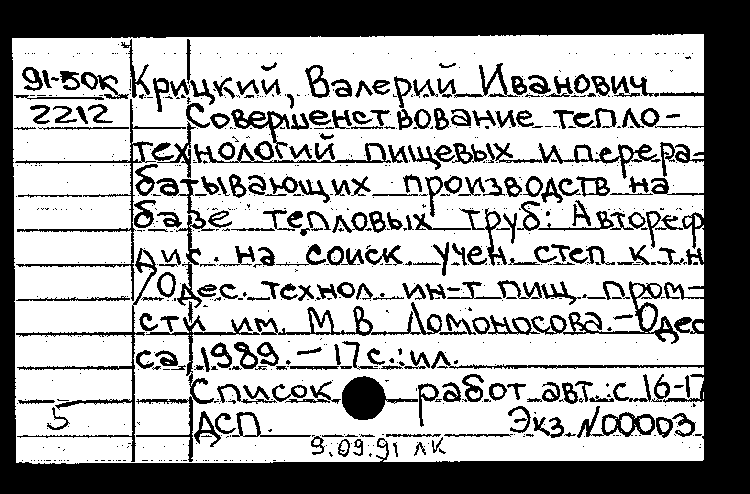 91-50к Крицкий, Валерий Иванович
2212 Совершенствование тепло-
технологий пищевых и перера-
батывающих производств на
базе тепловых труб: Автореф
дис. на соиск. учен. степ к.т.н
/Одес. технол. ин-т пищ. пром-
сти им. М.В Ломоносова.-Одес
са, 1989.-17с.:ил.
Список работ авт.:с 16-17
5 ДСП. Экз.N00003
9.09.91 ЛК